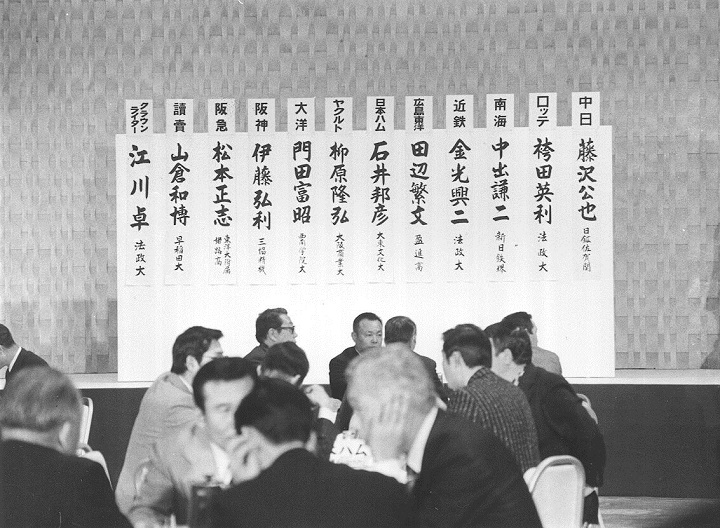 中日
藤沢公也
日鉱佐賀関
ロッテ
袴田英利
法政大
南海
中出謙二
新日鉄堺
近鉄
金光興二
法政大
広島東洋
田辺繁文
盈進高
日本ハム
石井邦彦
大東文化大
ヤクルト
柳原隆弘
大阪商業大
大洋
門田富昭
西南学院大
阪神
伊藤弘利
三協精機
阪急
松本正志
東洋大附属
姫路高
讀賣
山倉和博
早稲田大
クラウン
ライター
江川卓
法政大
ハム